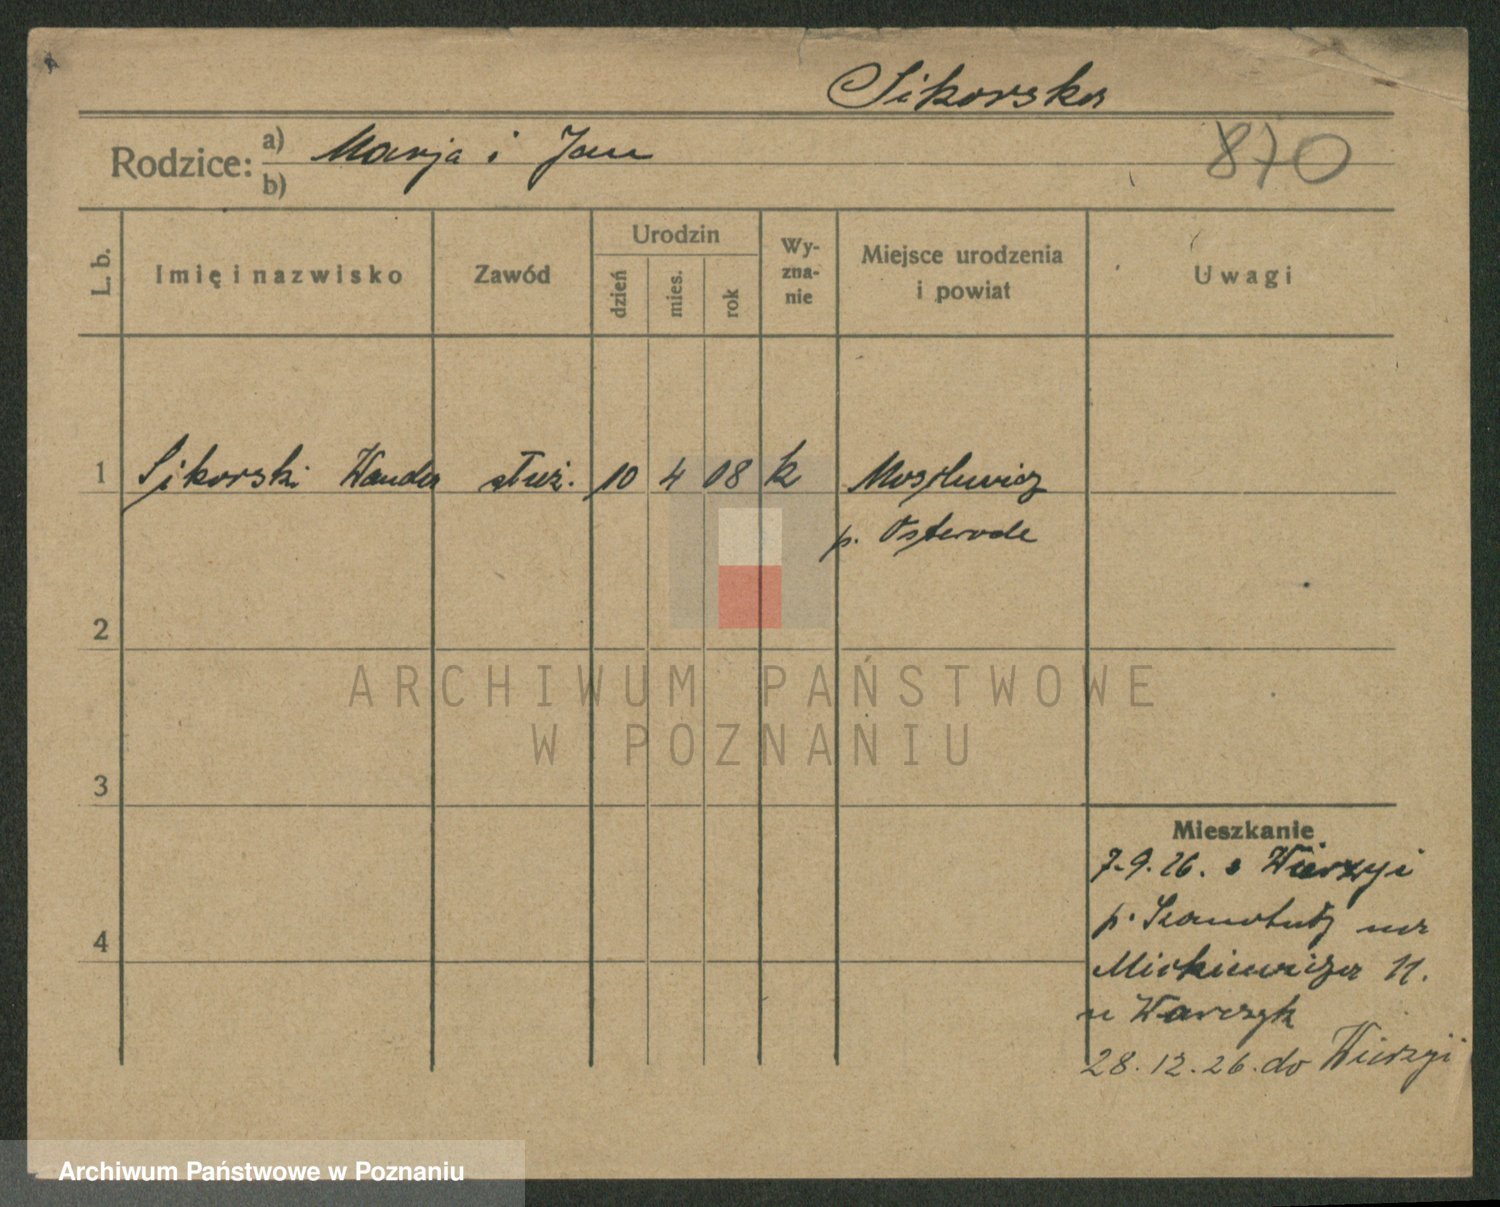 Sikorska
Rodzice: a) Marja i Jan
b)
870
L. b.
Imię i nazwisko
Zawód
Urodzin
dzień
mies.
rok
Wy-
zna-
nie
Miejsce urodzenia
i powiat
Uwagi
1 Sikorski Wanda służ. 10 4 08 k
p. Osterode
2
3
4
ARCHIWUM PAŃSTWOWE
W POZNANIU
Mieszkanie
7.9.26. z Wierzyi
p. Szamotuły
Mickiewicza 11.
u Warczyk
28.12.26. do Wierzyi
Archiwum Państwowe w Poznaniu